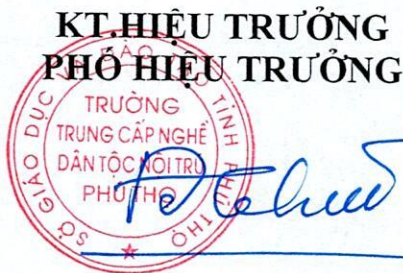 KT.HIỆU TRƯỞNG
PHÓ HIỆU TRƯỞNG
SỞ GIÁO DỤC VÀ ĐÀO TẠO TỈNH PHÚ THỌ
TRƯỜNG
TRUNG CẤP NGHỀ
DÂN TỘC NỘI TRÚ
PHÚ THỌ